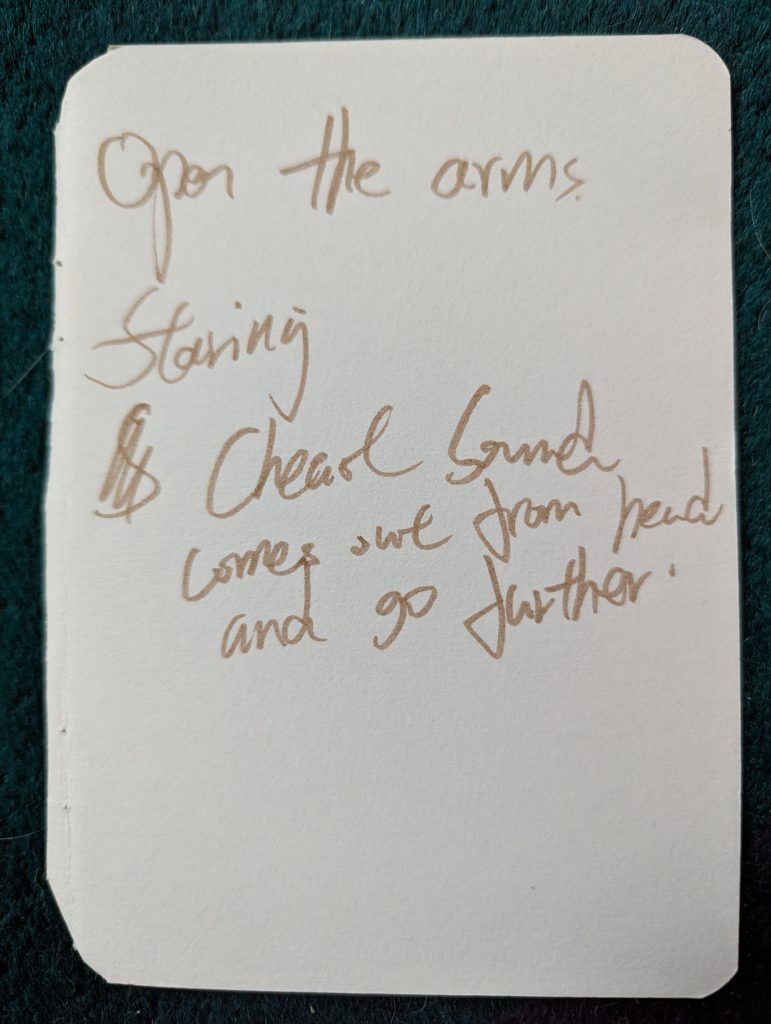 Open the arms.
Staring
Sound
comes out from head
and go further.